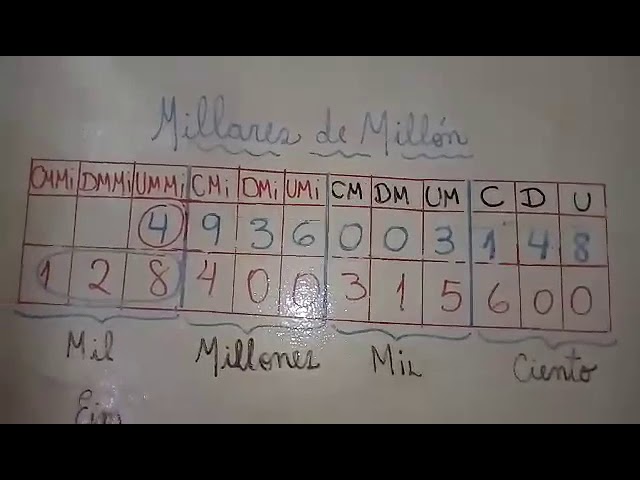 Millares de Millón
CMMi DMMi UMMi CMi DMi UMi CM DM UM C D U
4 9 3 6 0 0 3 1 4 8
1 2 8 4 0 0 3 1 5 6 0 0
Mil Millones Mil Ciento